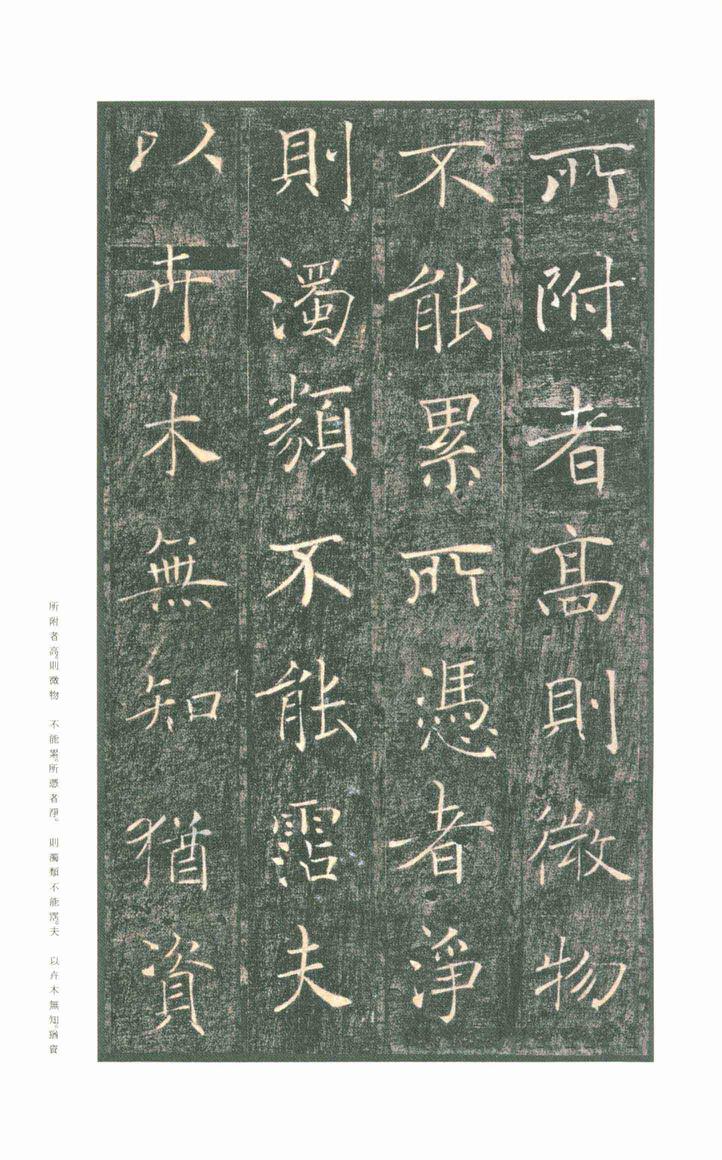 所附者高則微物
不能累所憑者淨
則濁類不能霑夫
以卉木無知猶資
所附者高。則微物　不能累。所憑者淨。　則濁類不能霑。夫　以卉木無知。猶資